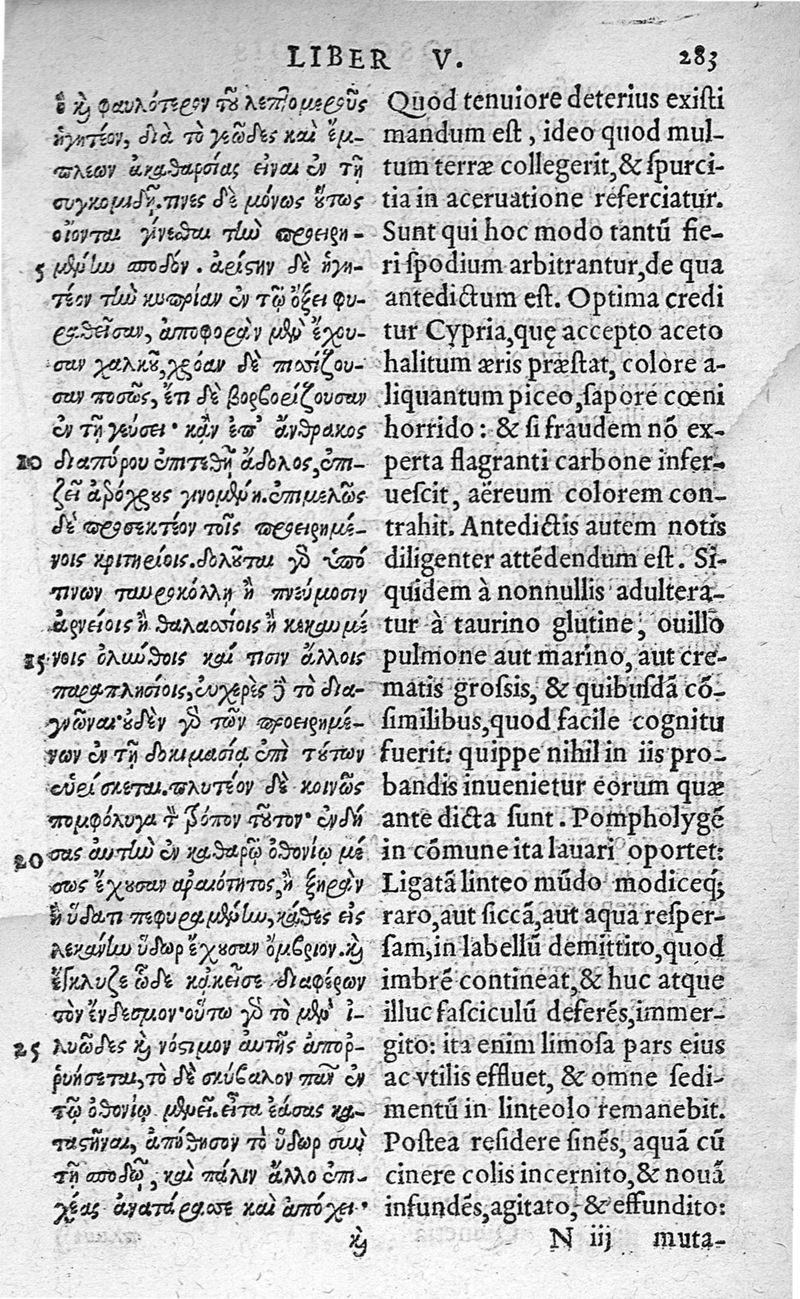 LIBER V. 283
ὃ καὶ φαυλότερον τοῦ λεπτομεροῦς
ἡγητέον, διὰ τὸ γεῶδες καὶ ἔμ-
πλεων ἀκαθαρσίας εἶναι ἐν τῇ
συγκομιδῇ. τινες δὲ μόνως οὕτως
οἴονται γίνεσθαι τὴν προειρη-
5 μένην σποδόν. ἀρίστην δὲ ἡγη-
τέον τὴν κυπρίαν ἐν τῷ ὄξει φυ-
ραθεῖσαν, ἀποφορὰν μὲν ἔχου-
σαν χαλκοῦ, χρόαν δὲ πισσίζου-
σαν ποσῶς, ἔτι δὲ βορβορίζουσαν
ἐν τῇ γεύσει· κἂν ἐπ' ἄνθρακος
10 διαπύρου ἐπιτεθῇ ἄδολος, ἐπι-
ζεῖ ἀερόχρους γινομένη. ἐπιμελῶς
δὲ προσεκτέον τοῖς προειρημέ-
νοις κριτηρίοις. δολοῦται γὰρ ὑπό
τινων ταυροκόλλῃ ἢ πνεύμοσιν
ἀρνείοις ἢ θαλασσίοις ἢ κεκαυμέ
15 νοις ὀλύνθοις καί τισιν ἄλλοις
παραπλησίοις, εὐχερὲς δὲ τὸ δια-
γνῶναι· οὐδὲν γὰρ τῶν προειρημέ-
νων ἐν τῇ δοκιμασίᾳ ἐπὶ τούτων
εὑρίσκεται. πλυτέον δὲ κοινῶς
πομφόλυγα τὸν τρόπον τοῦτον· ἐνδή
20 σας αὐτὴν ἐν καθαρῷ ὀθονίῳ μέ
σως ἔχουσαν ἀραιότητος, ἢ ξηρὰν
ἢ ὕδατι πεφυραμένην, κάθες εἰς
λεκάνην ὕδωρ ἔχουσαν ὄμβριον. καὶ
ἔκκλυζε ὧδε κἀκεῖσε διαφέρων
τὸν ἔνδεσμον· οὕτω γὰρ τὸ μὲν ἰ-
25 λυῶδες καὶ νόστιμον αὐτῆς ἀπορ-
ρυήσεται, τὸ δὲ σκύβαλον πᾶν ἐν
τῷ ὀθονίῳ μενεῖ. εἶτα ἐάσας κα-
ταστῆναι, ἀπόθησον τὸ ὕδωρ σὺν
τῇ σποδῷ, καὶ πάλιν ἄλλο ἐπι-
χέας ἀνατάρασσε καὶ ἀπόχει·
καὶ
Quod tenuiore deterius existi
mandum est, ideo quod mul-
tum terræ collegerit, & spurci-
tia in aceruatione referciatur.
Sunt qui hoc modo tantũ fie-
ri spodium arbitrantur, de qua
antedictum est. Optima credi
tur Cypria, quę accepto aceto
halitum æris præstat, colore a-
liquantum piceo, sapore cœni
horrido: & si fraudem nõ ex-
perta flagranti carbone infer-
uescit, aëreum colorem con-
trahit. Antedictis autem notis
diligenter attẽdendum est. Si-
quidem à nonnullis adultera-
tur à taurino glutine, ouillo
pulmone aut marino, aut cre-
matis grossis, & quibusdã cõ-
similibus, quod facile cognitu
fuerit: quippe nihil in iis pro-
bandis inuenietur eorum quæ
ante dicta sunt. Pompholygẽ
in cõmune ita lauari oportet:
Ligatã linteo mũdo modiceq́;
raro, aut siccã, aut aqua resper-
sam, in labellũ demittito, quod
imbrẽ contineat, & huc atque
illuc fasciculũ deferẽs, immer-
gito: ita enim limosa pars eius
ac vtilis effluet, & omne sedi-
mentũ in linteolo remanebit.
Postea residere sinẽs, aquã cũ
cinere colis incernito, & nouã
infundẽs, agitato, & effundito:
N iij muta-